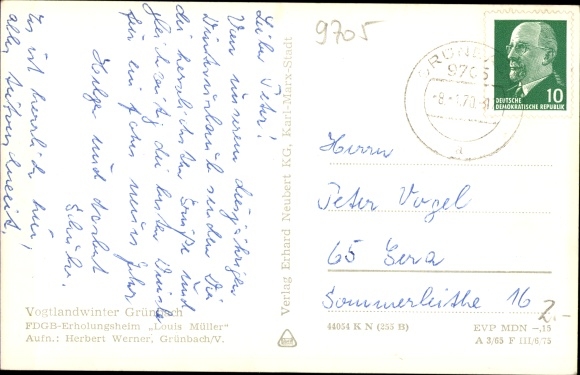 Lieber Peter!
Von unserem diesjährigen
Winterurlaub senden Dir
die herzlichsten Grüße und
gleichzeitig die besten Wünsche
für ein frohes neues Jahr
Helga und Norbert
Schulze.
Es ist herrlich hier,
alles tief verschneit.
Vogtlandwinter Grünbach
FDGB-Erholungsheim „Louis Müller"
Aufn.: Herbert Werner, Grünbach/V.
Verlag Erhard Neubert KG, Karl-Marx-Stadt
9705
GRÜNB
9705
-8.-1.70.-
a
DEUTSCHE
DEMOKRATISCHE REPUBLIK
10
Herrn
Peter Vogel
65 Gera
Sommerleithe 16
2.-
44054 K N (255 B)
EVP MDN -,15
A 3/65 F III/6/75